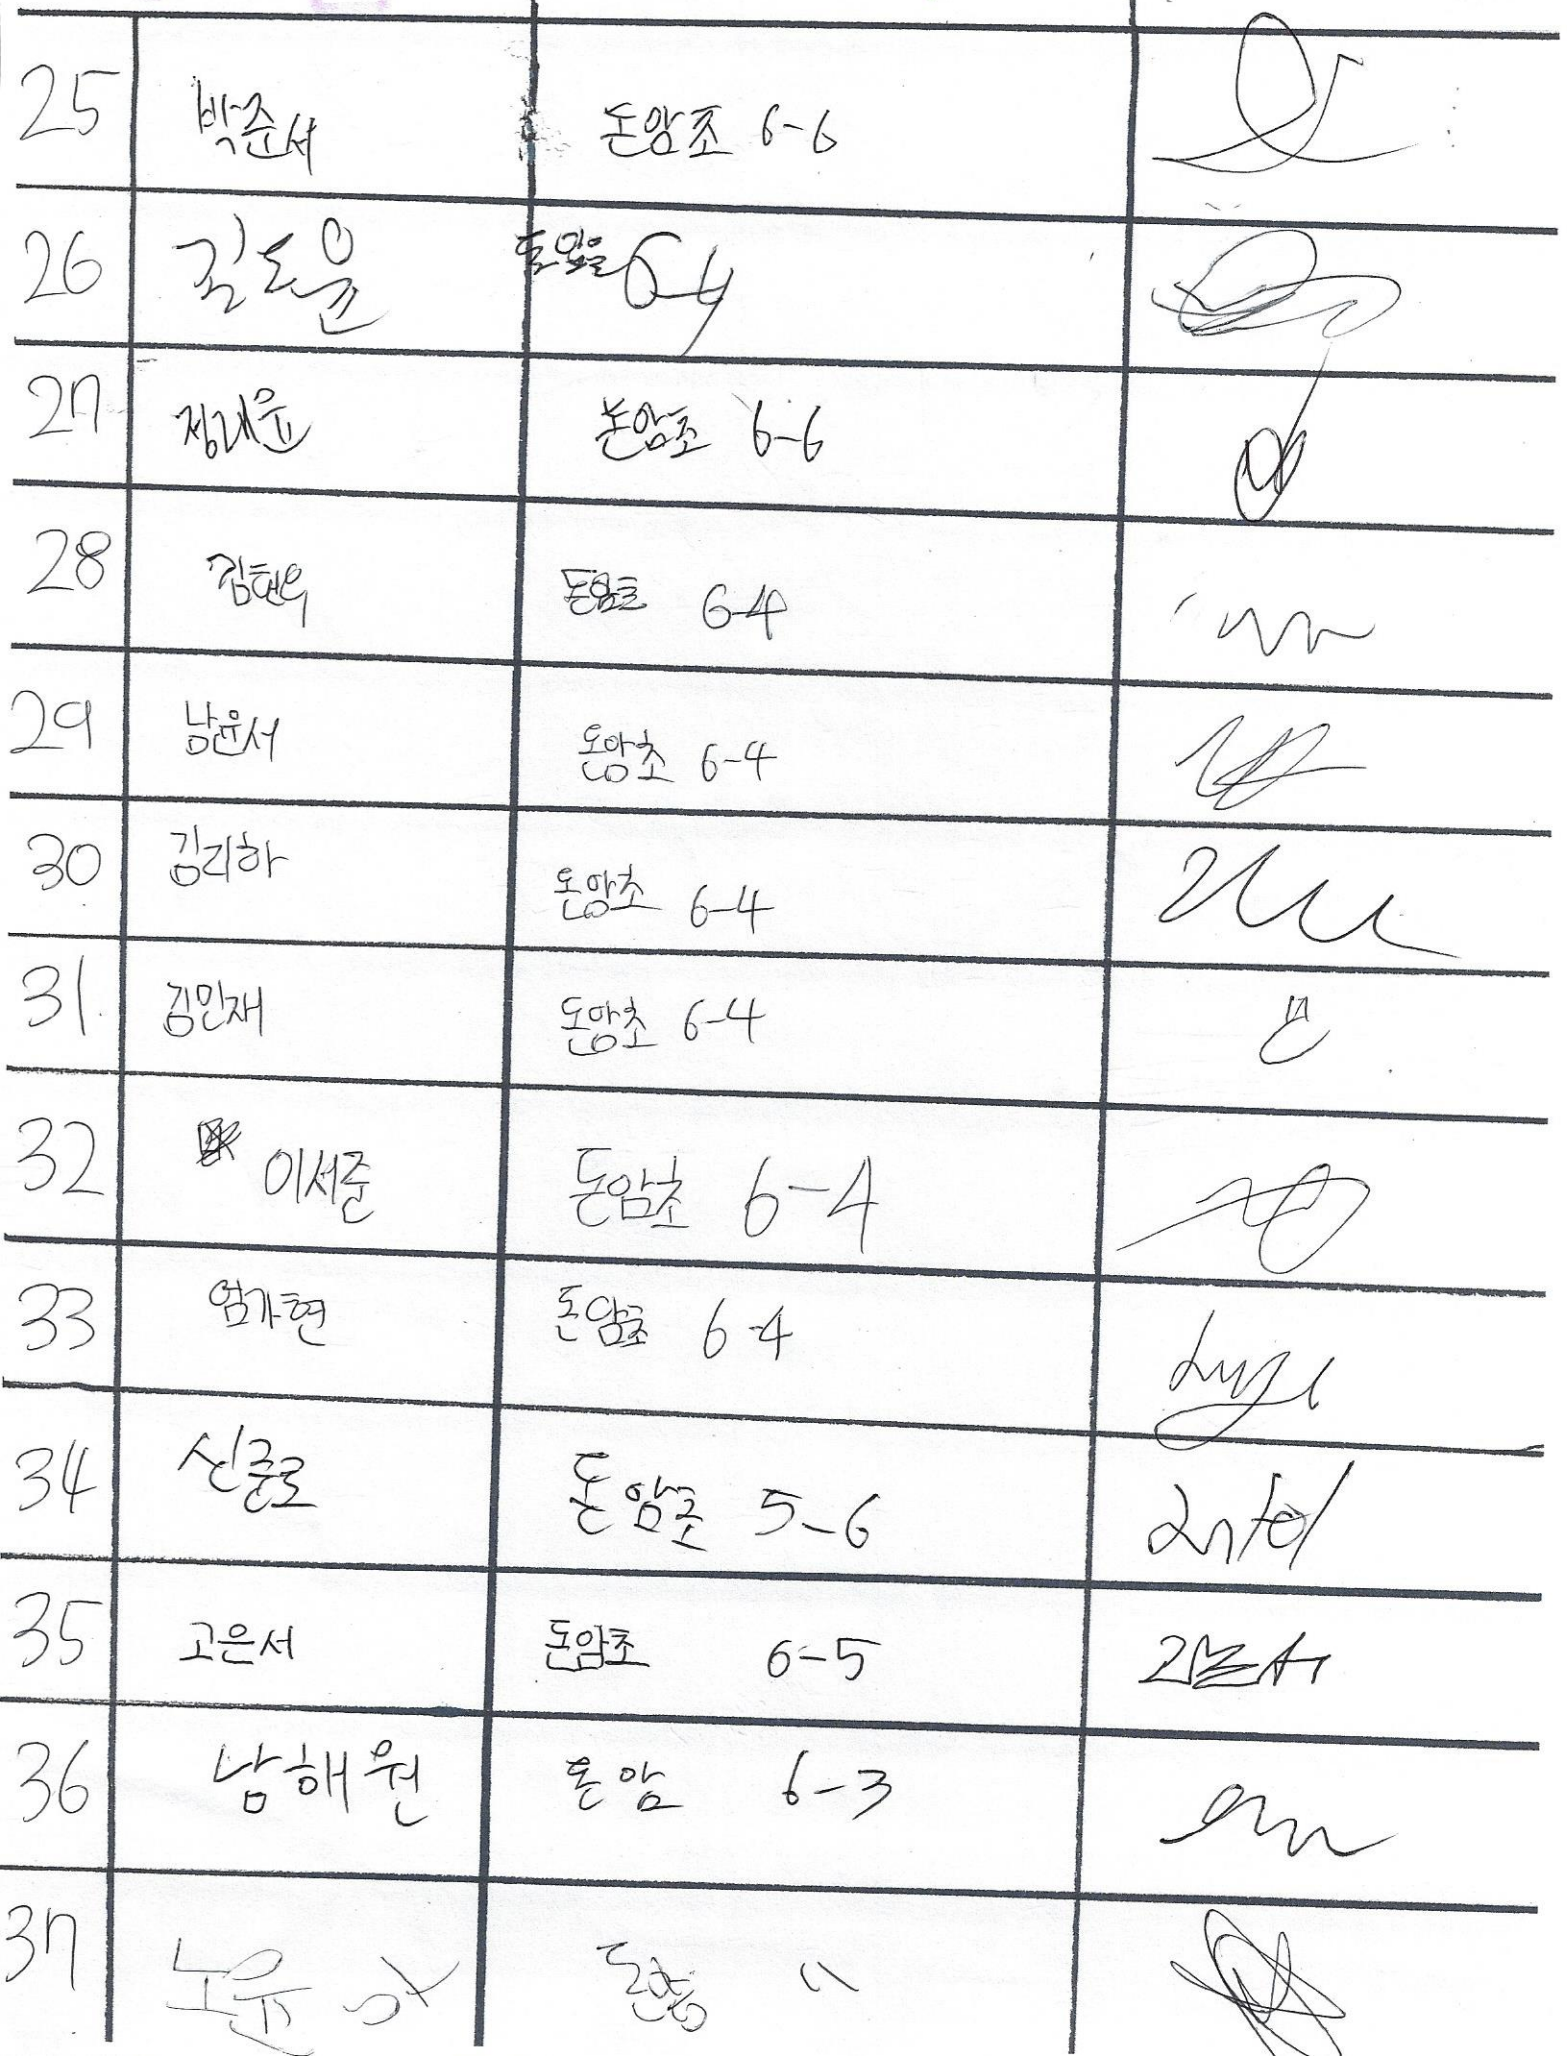 25 박준서 돈암초 6-6
26 김도윤 돈암초 6-4
27 정대윤 돈암초 6-6
28 김현욱 돈암초 6-4
29 남윤서 돈암초 6-4
30 김리하 돈암초 6-4
31 김민재 돈암초 6-4
32 이서준 돈암초 6-4
33 엄가현 돈암초 6-4
34 신준호 돈암초 5-6
35 고은서 돈암초 6-5 고은서
36 남해원 돈암 6-3
37 돈암 "